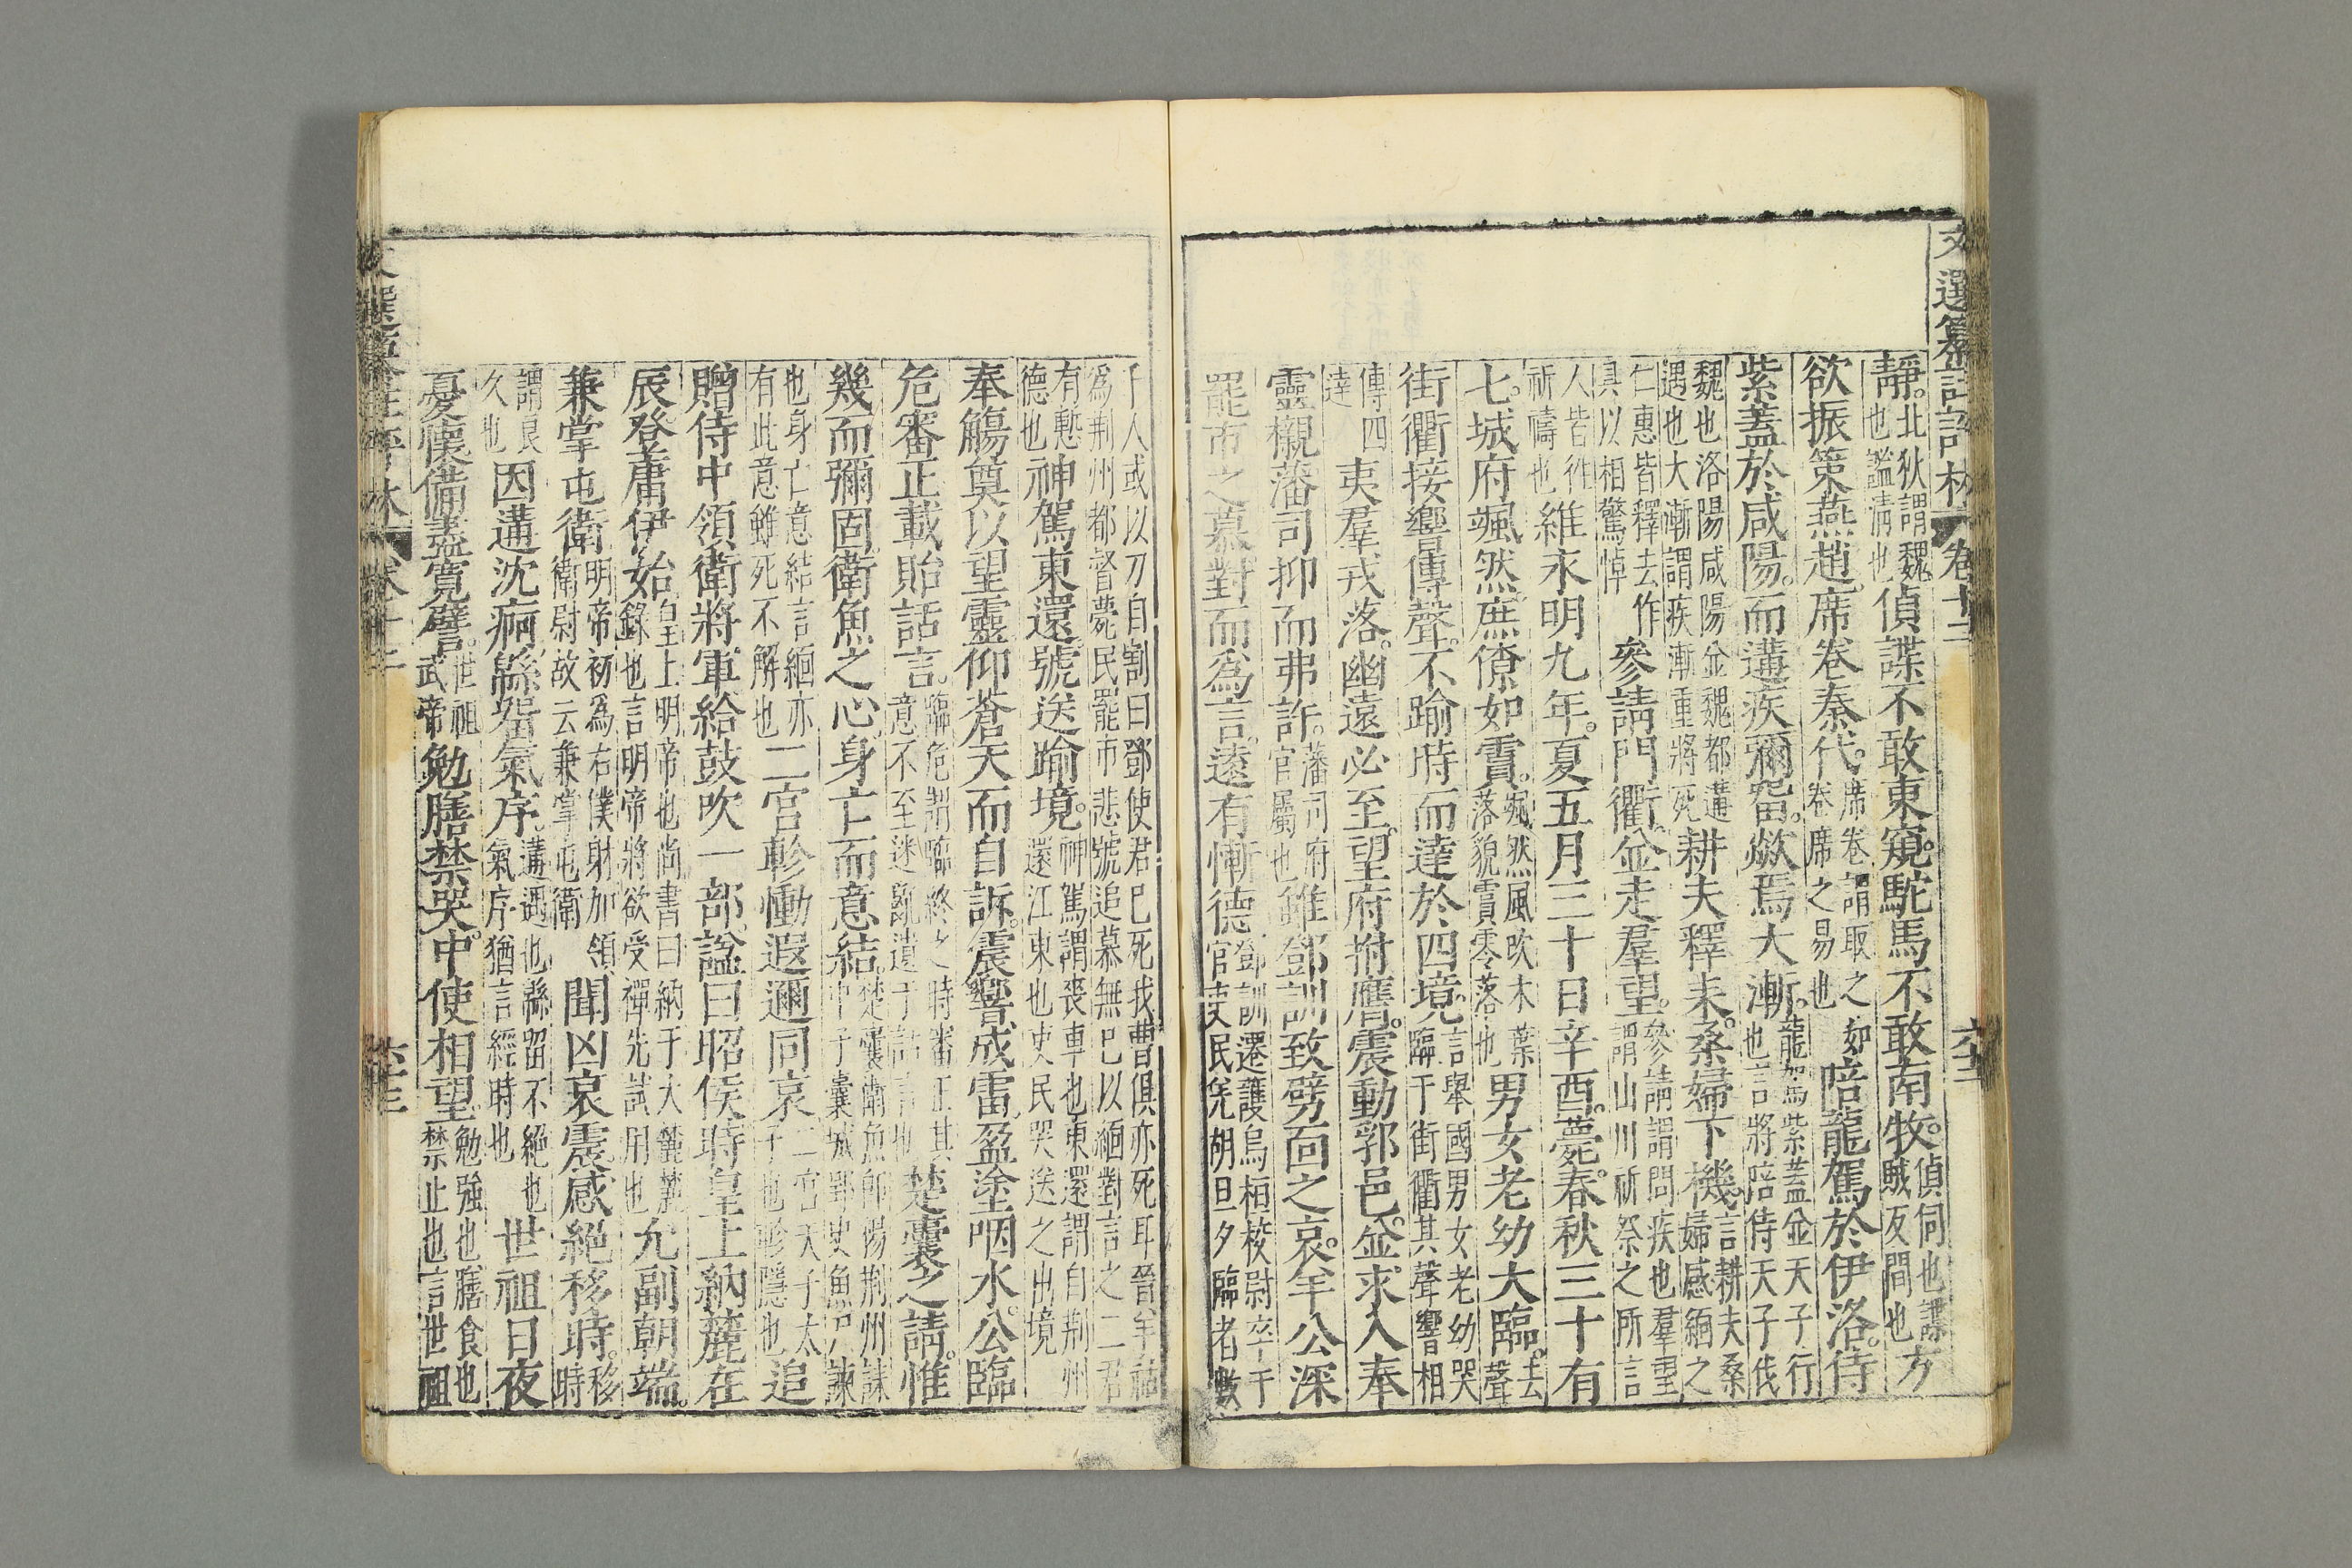 文選纂註評林 卷十二 六十二
靜。北狄謂魏也謐清也偵諜不敢東窺。駝馬不敢南牧。偵伺也諜賊反間也方
欲振策燕趙。席卷秦代。席卷謂取之如卷席之易也陪龍駕於伊洛。侍
紫蓋於咸陽。而遘疾彌留。歘焉大漸。龍駕紫蓋並天子行也言將陪侍天子伐
魏也洛陽咸陽並魏都遘遇也大漸謂疾漸重將死耕夫釋耒。桑婦下機。言耕夫桑婦感緬之
仁惠皆釋去作具以相驚悼參請門衢。並走羣望。參請謂問疾也羣望謂山川祈祭之所言
人皆徃祈禱也維永明九年。夏五月三十日辛酉。薨。春秋三十有
七。城府颯然。庶僚如霣。颯然風吹木葉落貌霣零落也男女老幼大臨。去聲
街衢接響傳聲。不踰時而達於四境。言舉國男女老幼哭臨于街衢其聲響相
傳四達夷羣戎落。幽遠必至。望府拊膺。震動郛邑。並求入奉
靈櫬藩司抑而弗許。藩司府官屬也雖鄧訓致劈面之哀。羊公深
罷市之慕。對而為言。遠有慚德鄧訓遷護烏桓校尉卒于官吏民羌胡旦夕臨者數
千人或以刀自割曰鄧使君已死我曹俱亦死耳晉羊祜為荆州都督薨民罷市悲號追慕無已以緬對言之二君
有慙德也神駕東還。號送踰境。神駕謂喪車也東還謂自荆州還江東也吏民哭送之出境
奉觴奠以望靈仰蒼天而自訴。震響成雷盈塗咽水。公臨
危審正載貽話言臨危謂臨終之時審正其意不至迷亂遺于話言也楚囊之請。惟
幾而彌固衛魚之心身亡而意結楚囊衛魚即傷荆州諫中子囊城郢史魚尸諫
也身亡意結言緬亦有此意雖死不解也二宮軫慟遐邇同哀二宮天子太子也軫隱也追
贈侍中領衛將軍給鼓吹一部諡曰昭侯時皇上納麓在
辰登庸伊始皇上明帝也尚書曰納于大麓麓錄也言明帝將欲受禪先試用也允副朝端。
兼掌屯衛明帝初為右僕射加領衛尉故云兼掌屯衛聞凶哀震感絕移時。移時
謂良久也因遘沈痾緜留氣序遘遇也緜留不絕也氣序猶言經時也世祖日夜
憂懷備盡寬譬。世祖武帝勉膳禁哭中使相望勉強也膳食也禁止也言世祖